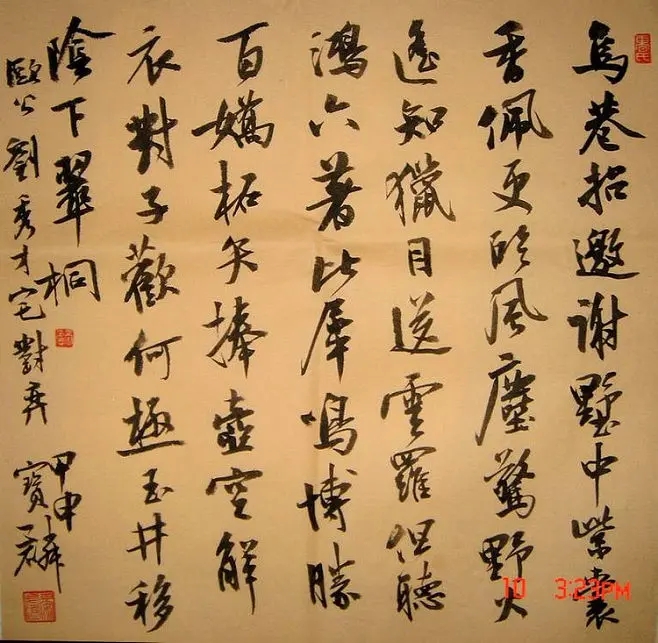 烏巷招邀謝墅中紫囊
香佩更臨風塵驚野火
遙知獵目送雲羅但聽
鴻六著比犀鳴博勝
百嬌柘矢捧壺空解
衣對子歡何極玉井移
陰下翠桐
歐公劉秀才宅對弈
甲申
寶麟
10 3:23PM